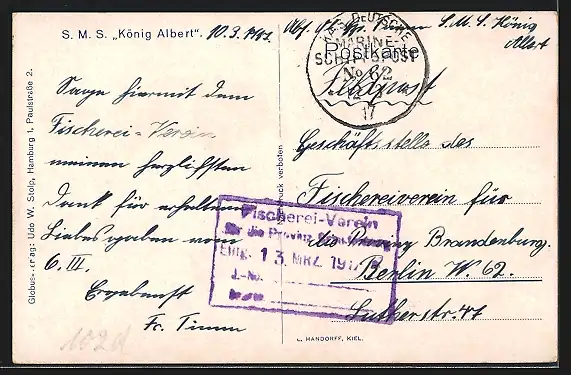 S. M. S. „König Albert".
10.3.1917
Abs. S. M. S. König
Albert
KAIS. DEUTSCHE
MARINE-
SCHIFFSPOST
No 62
12
17
Postkarte
Feldpost
Sage hiermit dem
Fischerei-Verein
meinen herzlichsten
Dank für erhaltene
Liebesgaben vom
6. III.
Ergebenst
Fr. Timm
Geschäftsstelle des
Fischereiverein für
die Provinz Brandenburg.
Berlin W. 62.
Lutherstr. 47
Fischerei-Verein
für die Provinz Brandenburg
Eing. 13. MRZ. 1917
J.-No.
102d
L. HANDORFF, KIEL.
Udo W. Stolp, Hamburg 1, Paulstraße 2.
verboten